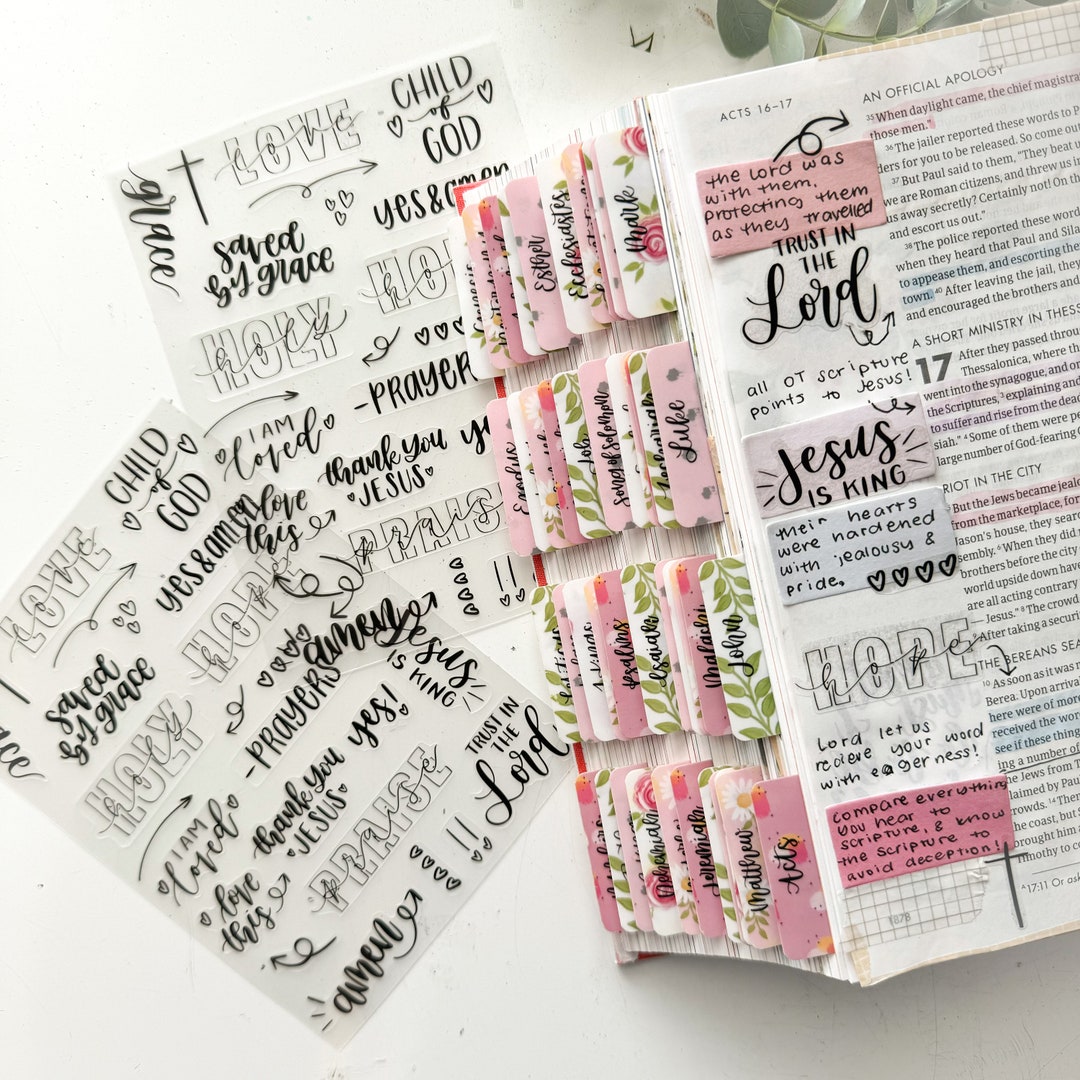 CHILD
of
GOD
LOVE
love
grace
yes&amen
saved
by grace
HOLY
holy
HO
-PRAYER
I AM
loved
thank you
JESUS
love
this
PRAISE
praise
!!
amen
Jesus
IS KING
CHILD
of
GOD
LOVE
love
yes&amen
HOPE
hope
saved
by grace
-PRAYERS
HOLY
holy
yes!
thank you
JESUS
TRUST IN
THE
Lord
I AM
loved
PRAISE
praise
!!
love
this
amen
Esther
Ecclesiastes
Mark
Exodus
Job
Song of Solomon
Luke
Psalms
Isaiah
Malachi
John
Nehemiah
Jeremiah
Matthew
Acts
ACTS 16–17
the Lord was
with them,
protecting them
as they travelled
TRUST IN
THE
Lord
all OT scripture
points to Jesus!
Jesus
IS KING
their hearts
were hardened
with jealousy &
pride.
HOPE
hope
Lord let us
recieve your word
with eagerness!
compare everything
you hear to
scripture, & know
the scripture to
avoid deception!
1878
AN OFFICIAL APOLOGY
35 When daylight came, the chief magistra
those men."
36 The jailer reported these words to P
ders for you to be released. So come ou
37 But Paul said to them, "They beat u
we are Roman citizens, and threw us in
us away secretly? Certainly not! On th
and escort us out."
38 The police reported these word
when they heard that Paul and Sila
to appease them, and escorting the
town. 40 After leaving the jail, they
and encouraged the brothers and
A SHORT MINISTRY IN THESS
17 After they passed throu
Thessalonica, where th
went into the synagogue, and on
the Scriptures, 3 explaining and
to suffer and rise from the dead
siah." 4 Some of them were pe
large number of God-fearing G
RIOT IN THE CITY
But the Jews became jealo
from the marketplace, for
Jason's house, they sear
embly. 6 When they did
brothers before the city
world upside down have
are all acting contrary
Jesus." 8 The crowd
After taking a securi
THE BEREANS SEA
10 As soon as it was
Berea. Upon arrival
here were of more
received the wor
see if these thing
ing a number of
the Jews from T
laimed by Paul
rowds. 14 Then
he coast, but
orought him
imothy to co
17:11 Or